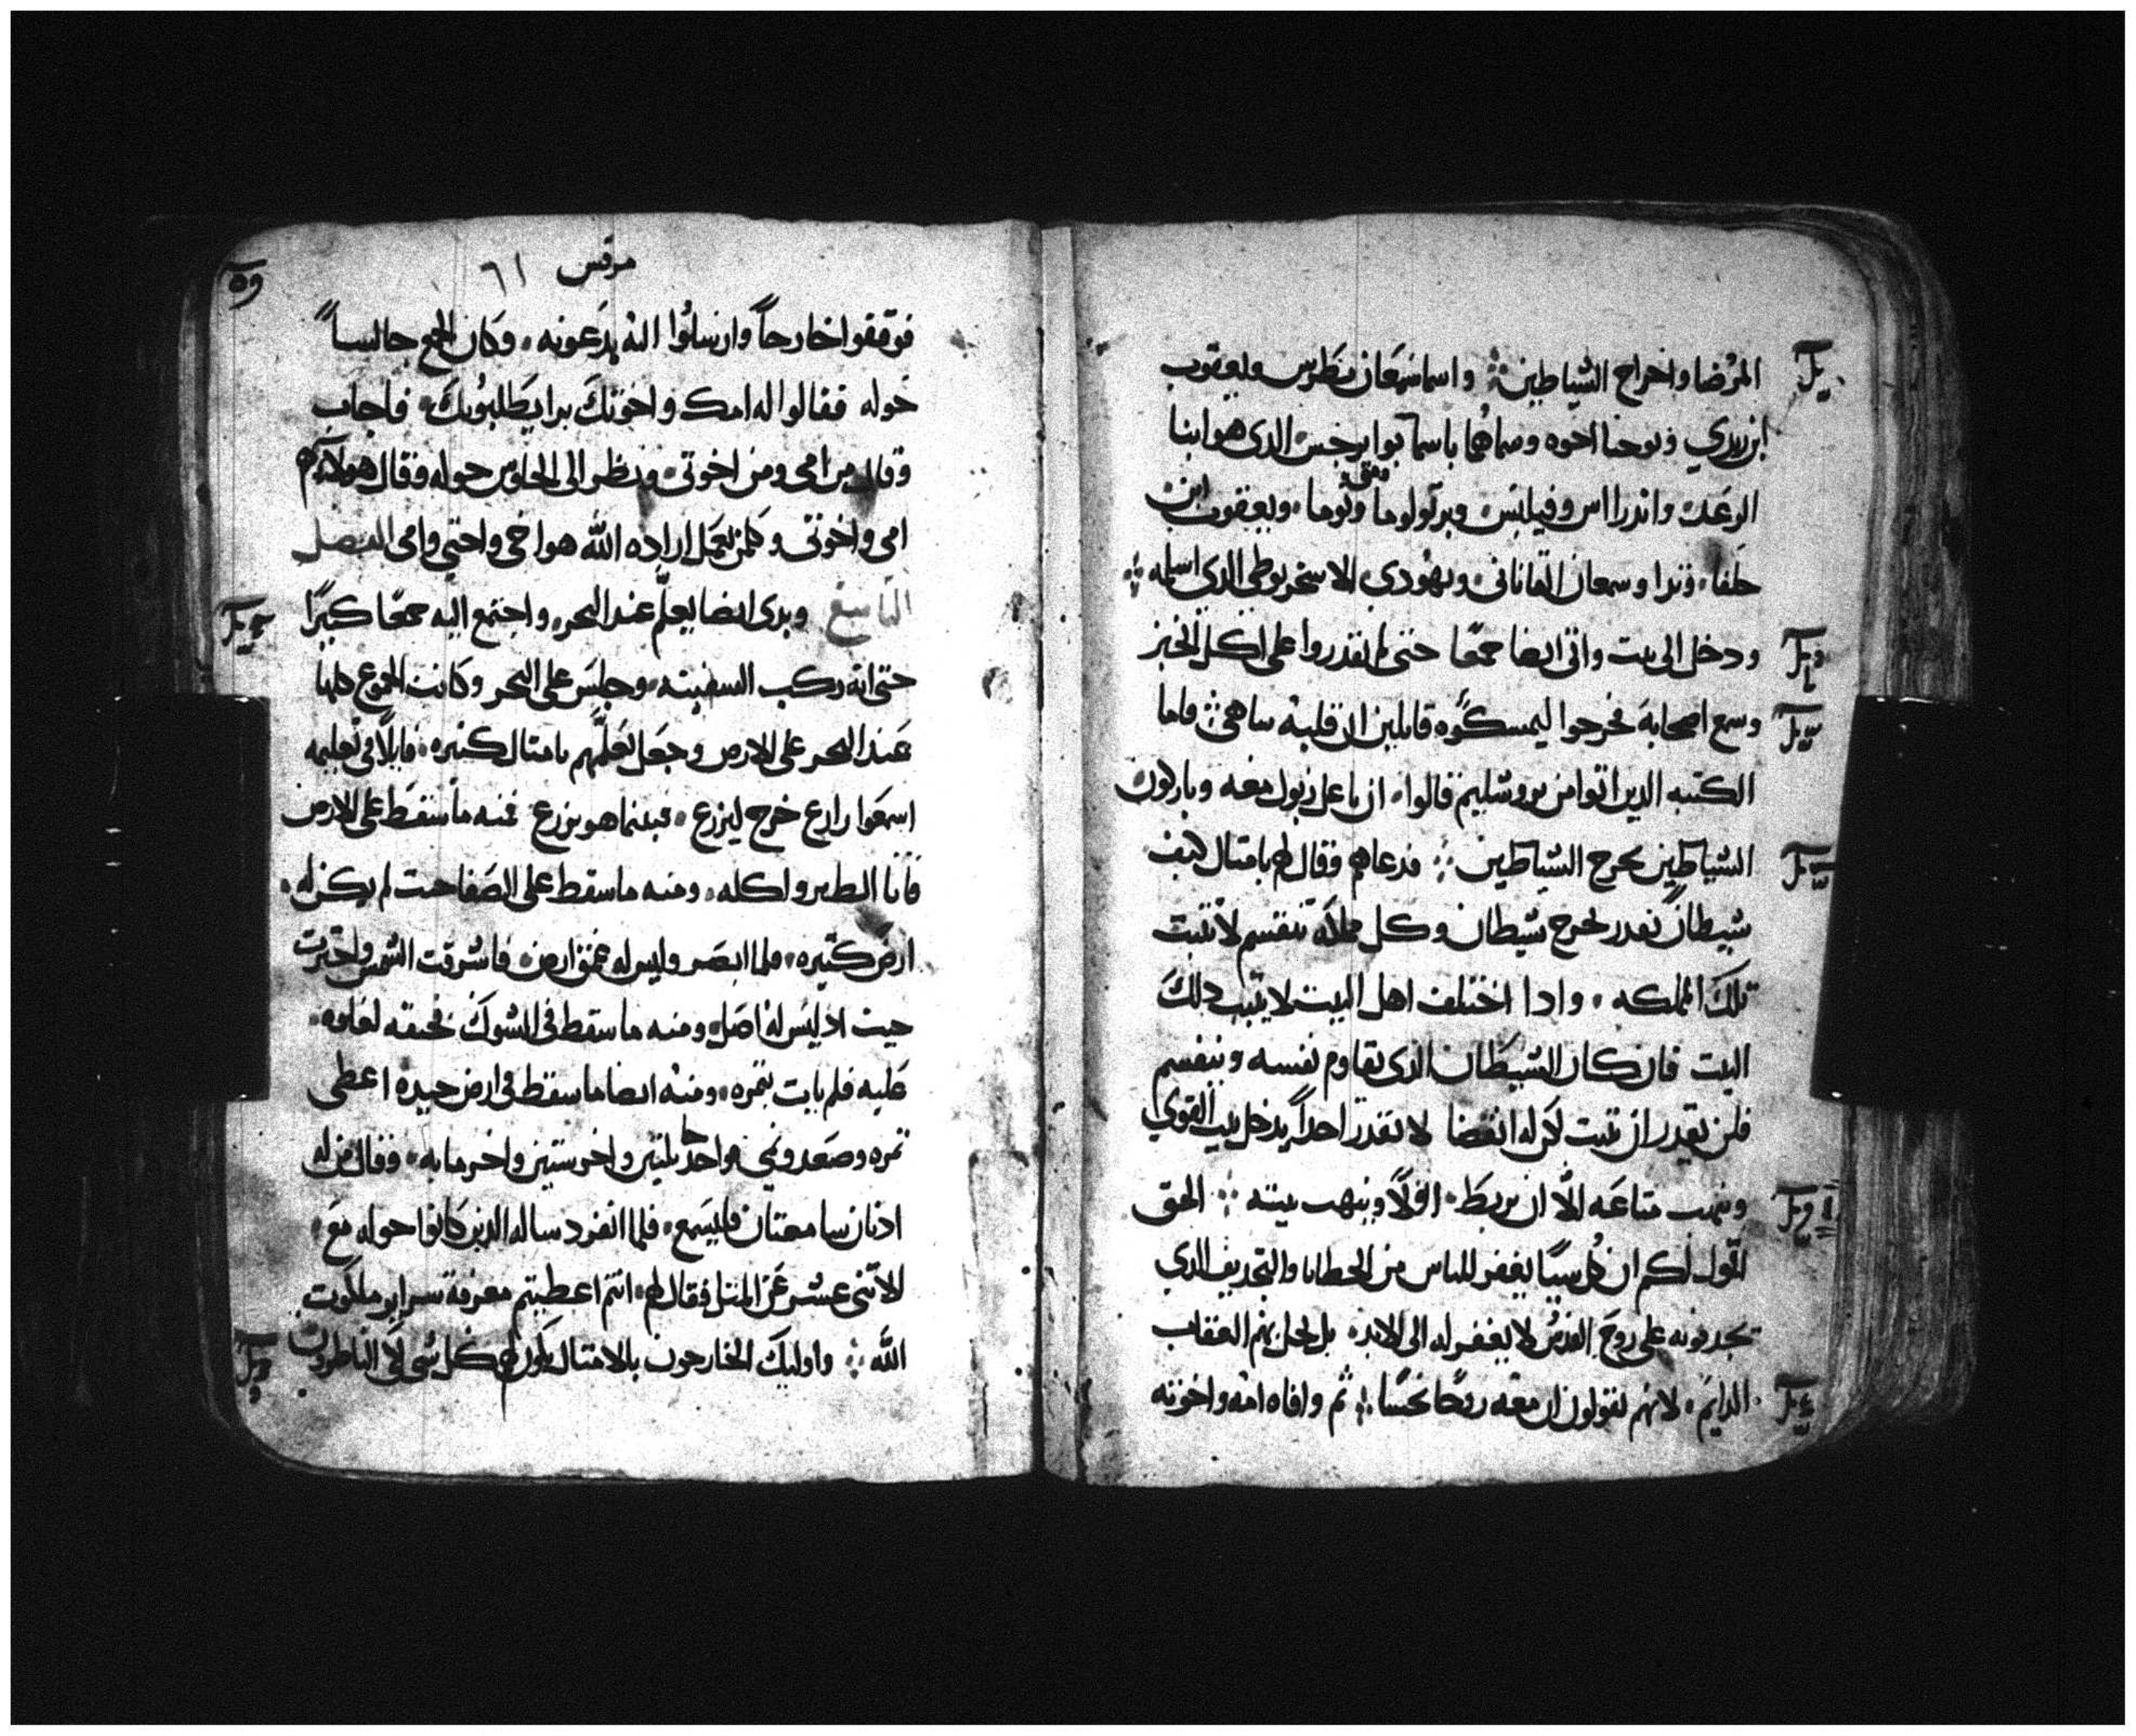 المرضا واخراج الشياطين ؞ واسما سمعان بطرس ويعقوب
ابن زبدي ويوحنا اخوه وسماهما باسما بوانرجس الدى هو ابنا
الرعد واندرااس وفيلبس وبرتولوما
متى
وتوما ويعقوب ابن
حلفا وتدا وسمعان القانانى ويهودى الاسخريوطى الدى اسلمه ؞
ودخل الى بيت واتى ايضا جمعا حتى لم يقدروا على اكل الخبز
وسمع اصحابه فخرجوا ليمسكوه قايلين ان قلبه ساهى ؞ فاما
الكتبه الدين اتوا من يروشليم قالوا ان باعل زبول معه وباركون
الشياطين يخرج الشياطين ؞ فدعاهم وقال لهم بامتال كيف
شيطان يقدر يخرج شيطان وكل مملكه تنقسم لا تتبت
تلك المملكه وادا اختلف اهل البيت لا يتبت دلك
البيت فان كان الشيطان الدى يقاوم نفسه وينقسم
فلن يقدر ان يتبت لكن له انقضا لا يقدر احداً يدخل بيت القوي
وينهب متاعه الا ان يربط اولاً وينهب بيته ؞ الحق
اقول لكم ان كل سيا يغفر للناس من الخطايا والتجديف الدي
يجدفونه على روح القدس لا يغفر له الى الابد بل يحل بهم العقاب
الدايم لانهم يقولون ان معه روحا نجسا ؞ ثم وافاه امه واخوته
مرقس ٦١
فوقفوا خارجاً وارسلوا اليه يدعونه وكان الجمع جالساً
حوله فقالوا له امك واخوتك برا يطلبونك فاجاب
وقال من امى ومن اخوتى ونظر الى الجلوس حوله وقال هولاء هم
امى واخوتى وكلمن يعمل اراده الله هو اخى واختي وامى الفصل
التاسع وبدى ايضا يعلم عند البحر واجتمع اليه جمعا كبيرًا
حتى انه ركب السفينه وجلس على البحر وكانت الجموع كلها
عند البحر على الارض وجعل يعلمهم بامتال كتيره قايلاً فى تعليمه
اسمعوا زارع خرج ليزرع فبينما هو يزرع فمنه ما سقط على الارض
فاتا الطير واكله ومنه ما سقط على الصفا حيت لم يكن له
ارض كتيره فلما ابصر وليس له عمق ارض فاشرقت الشمس واحترت
حيت اد ليس له اصل ومنه ما سقط فى الشوك فخنقه لعلوه
عليه فلم يات بتمره ومنه ايضا ما سقط فى ارض جيده اعطى
تمره وصعد ونمى فواحد جا بلتين واخر ستين واخر مايه وقال من له
ادنان سامعتان فليسمع فلما انفرد ساله الدين كانوا حوله مع
الاتنى عشر عن المتل فقال لهم انتم اعطيتم معرفة سراير ملكوت
الله ؞ واوليك الخارجون بالامتال يكون لهم كل شى لان الناظرون